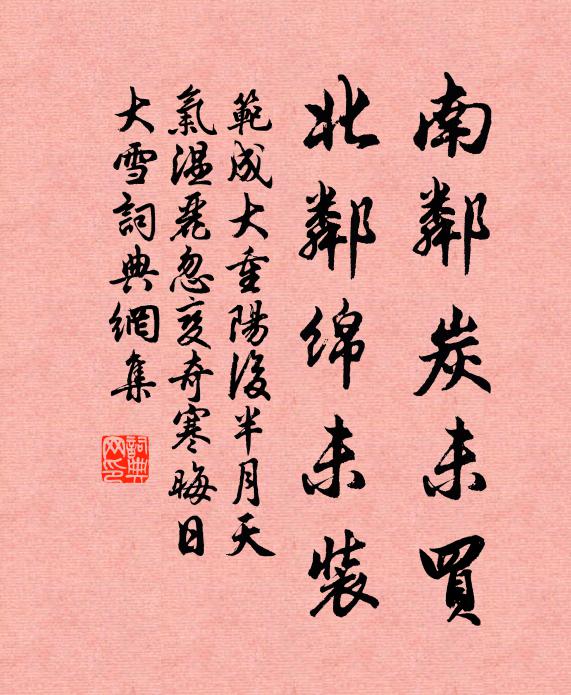 南鄰炭未買
北鄰綿未裝
範成大重陽後半月天
氣溫麗忽變奇寒晦日
大雪詞典網集
詞典网印